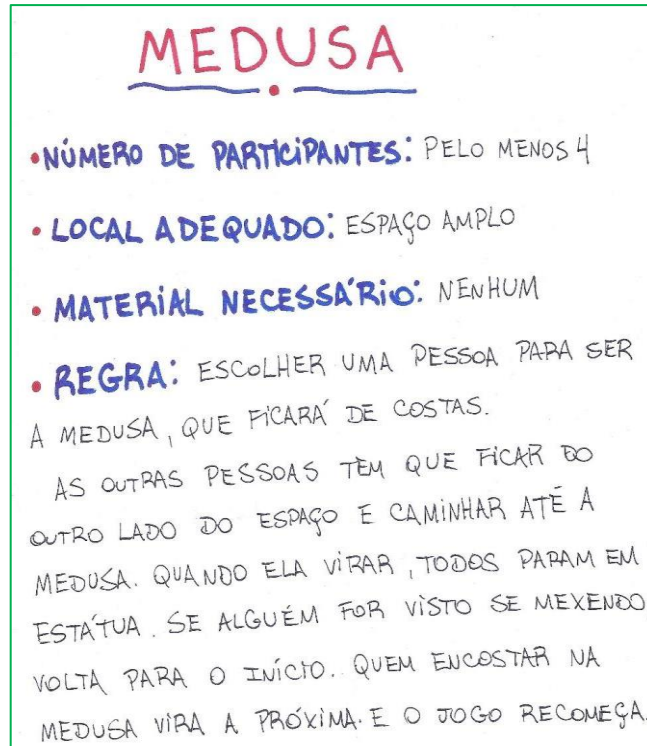 MEDUSA
• NÚMERO DE PARTICIPANTES: PELO MENOS 4
• LOCAL ADEQUADO: ESPAÇO AMPLO
• MATERIAL NECESSÁRIO: NENHUM
• REGRA: ESCOLHER UMA PESSOA PARA SER
A MEDUSA, QUE FICARÁ DE COSTAS.
AS OUTRAS PESSOAS TÊM QUE FICAR DO
OUTRO LADO DO ESPAÇO E CAMINHAR ATÉ A
MEDUSA. QUANDO ELA VIRAR, TODOS PARAM EM
ESTÁTUA. SE ALGUÉM FOR VISTO SE MEXENDO
VOLTA PARA O INÍCIO. QUEM ENCOSTAR NA
MEDUSA VIRA A PRÓXIMA. E O JOGO RECOMEÇA.